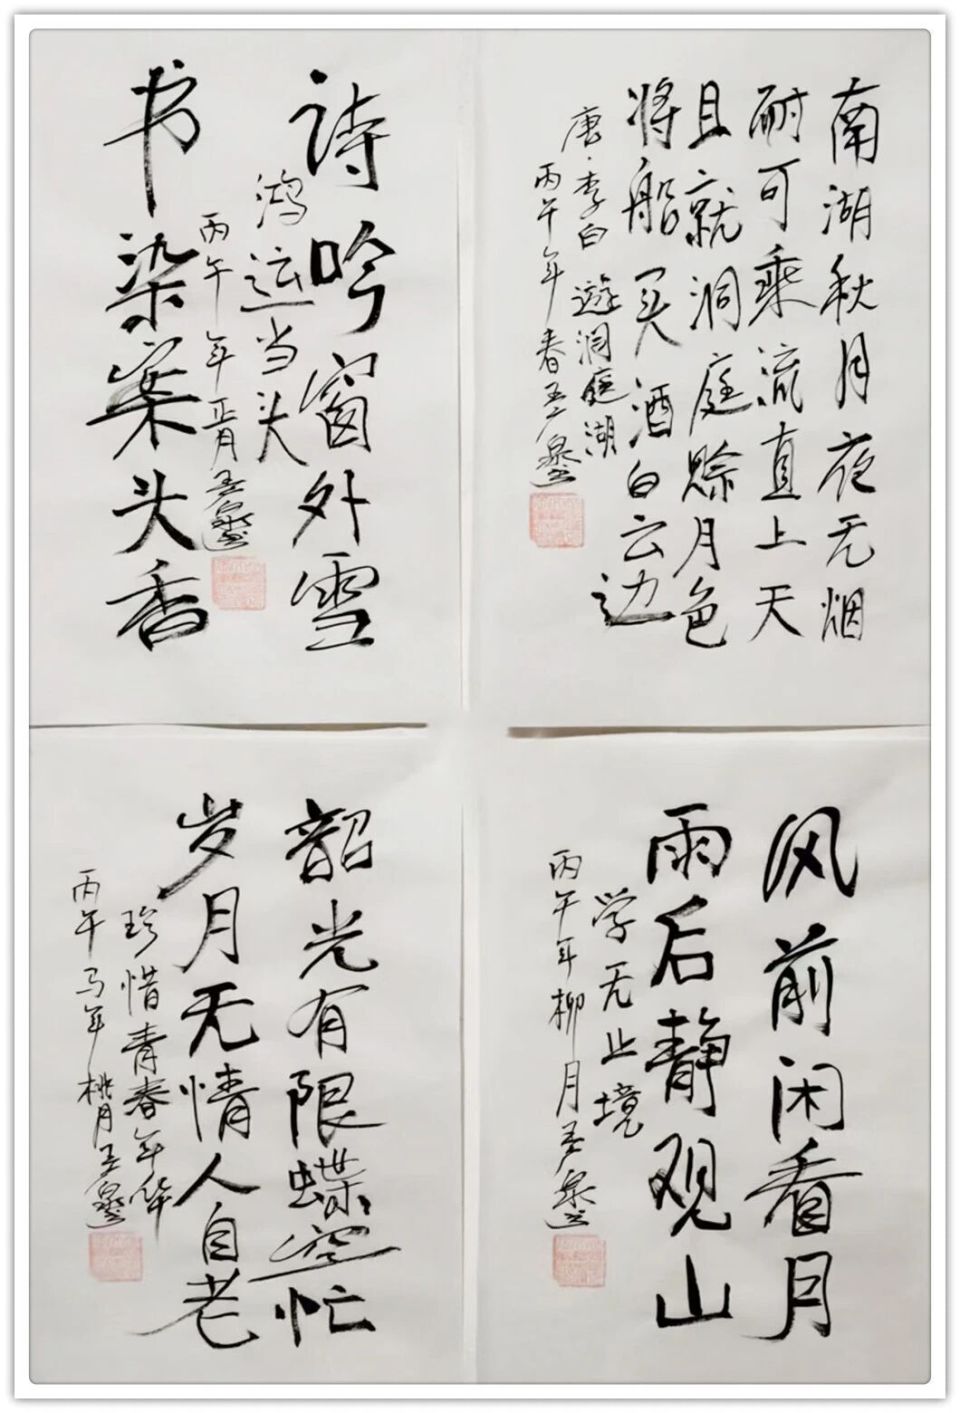 南湖秋月夜无烟
耐可乘流直上天
且就洞庭赊月色
将船买酒白云边
唐·李白 遊洞庭湖
丙午年春王
诗吟窗外雪
书染案头香
鸿运当头
丙午年正月王
风前闲看月
雨后静观山
学无止境
丙午年柳月王
韶光有限蝶空忙
岁月无情人自老
珍惜青春年华
丙午马年桃月王